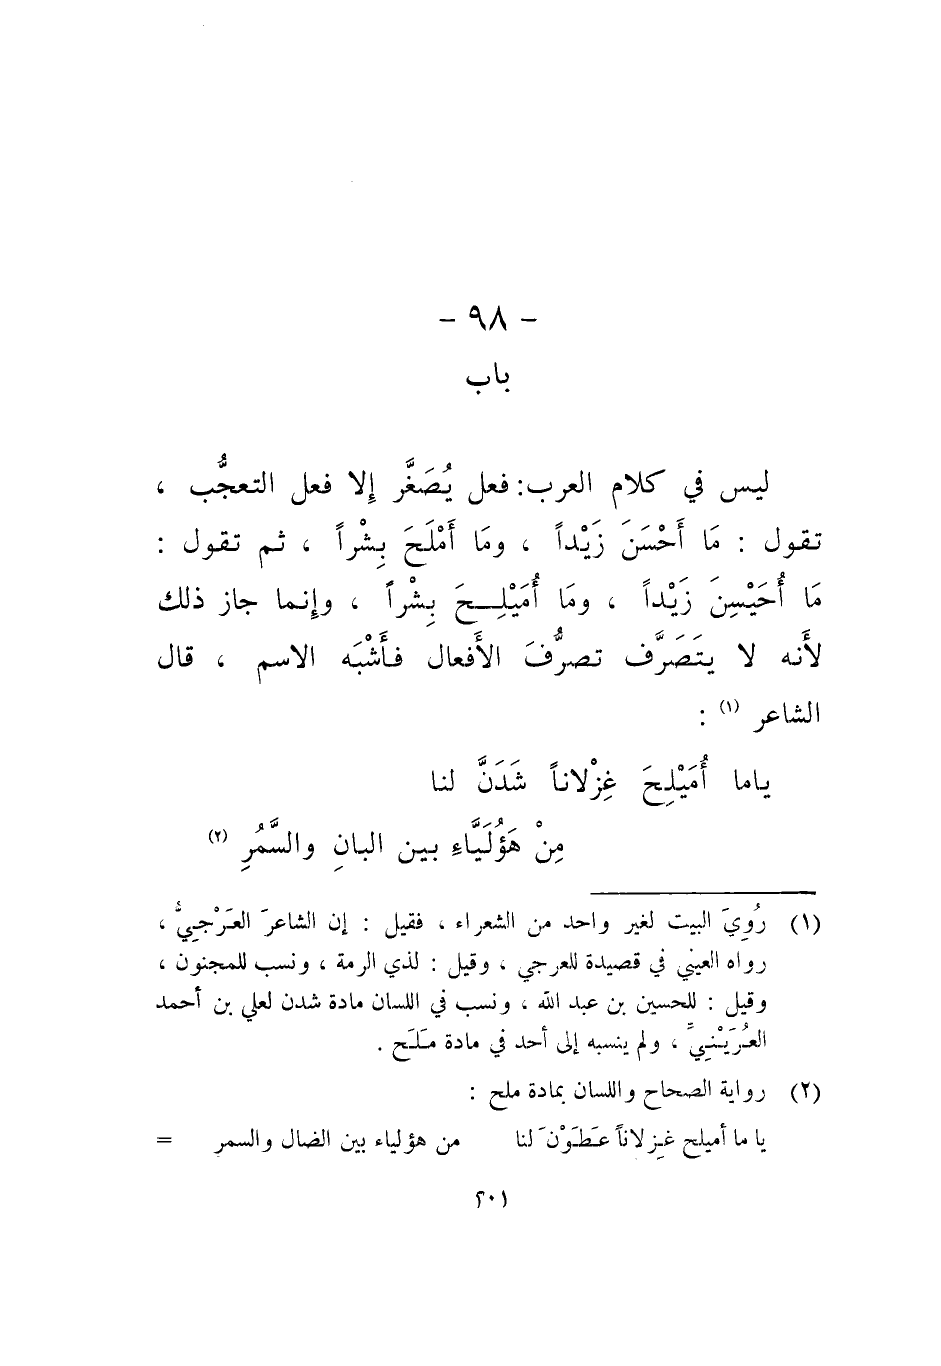 - ٩٨ -
باب
ليس في كلام العرب: فعل يُصَغَّر إلا فعل التعجُّب ،
تقول : مَا أَحْسَنَ زَيْداً ، ومَا أَمْلَحَ بِشْراً ، ثم تقول :
مَا أُحَيْسِنَ زَيْداً ، ومَا أُمَيْلِحَ بِشْراً ، وإنما جاز ذلك
لأَنه لا يتَصَرَّف تصرُّفَ الأَفعال فأَشْبَه الاسم ، قال
الشاعر (١) :
ياما أُمَيْلِحَ غِزْلاناً شَدَنَّ لنا
مِنْ هَؤُلَيَّاءِ بين البانِ والسَّمُرِ (٢)
(١) رُوِيَ البيت لغير واحد من الشعراء ، فقيل : إن الشاعرَ العَرْجِيُّ ،
رواه العيني في قصيدة للعرجي ، وقيل : لذي الرمة ، ونسب للمجنون ،
وقيل : للحسين بن عبد الله ، ونسب في اللسان مادة شدن لعلي بن أحمد
العُرَيْنِيِّ ، ولم ينسبه إلى أحد في مادة مَلَح .
(٢) رواية الصحاح واللسان بمادة ملح :
يا ما أميلح غزلاناً عَطَوْنَ لنا من هؤلياء بين الضال والسمر =
٢٠١